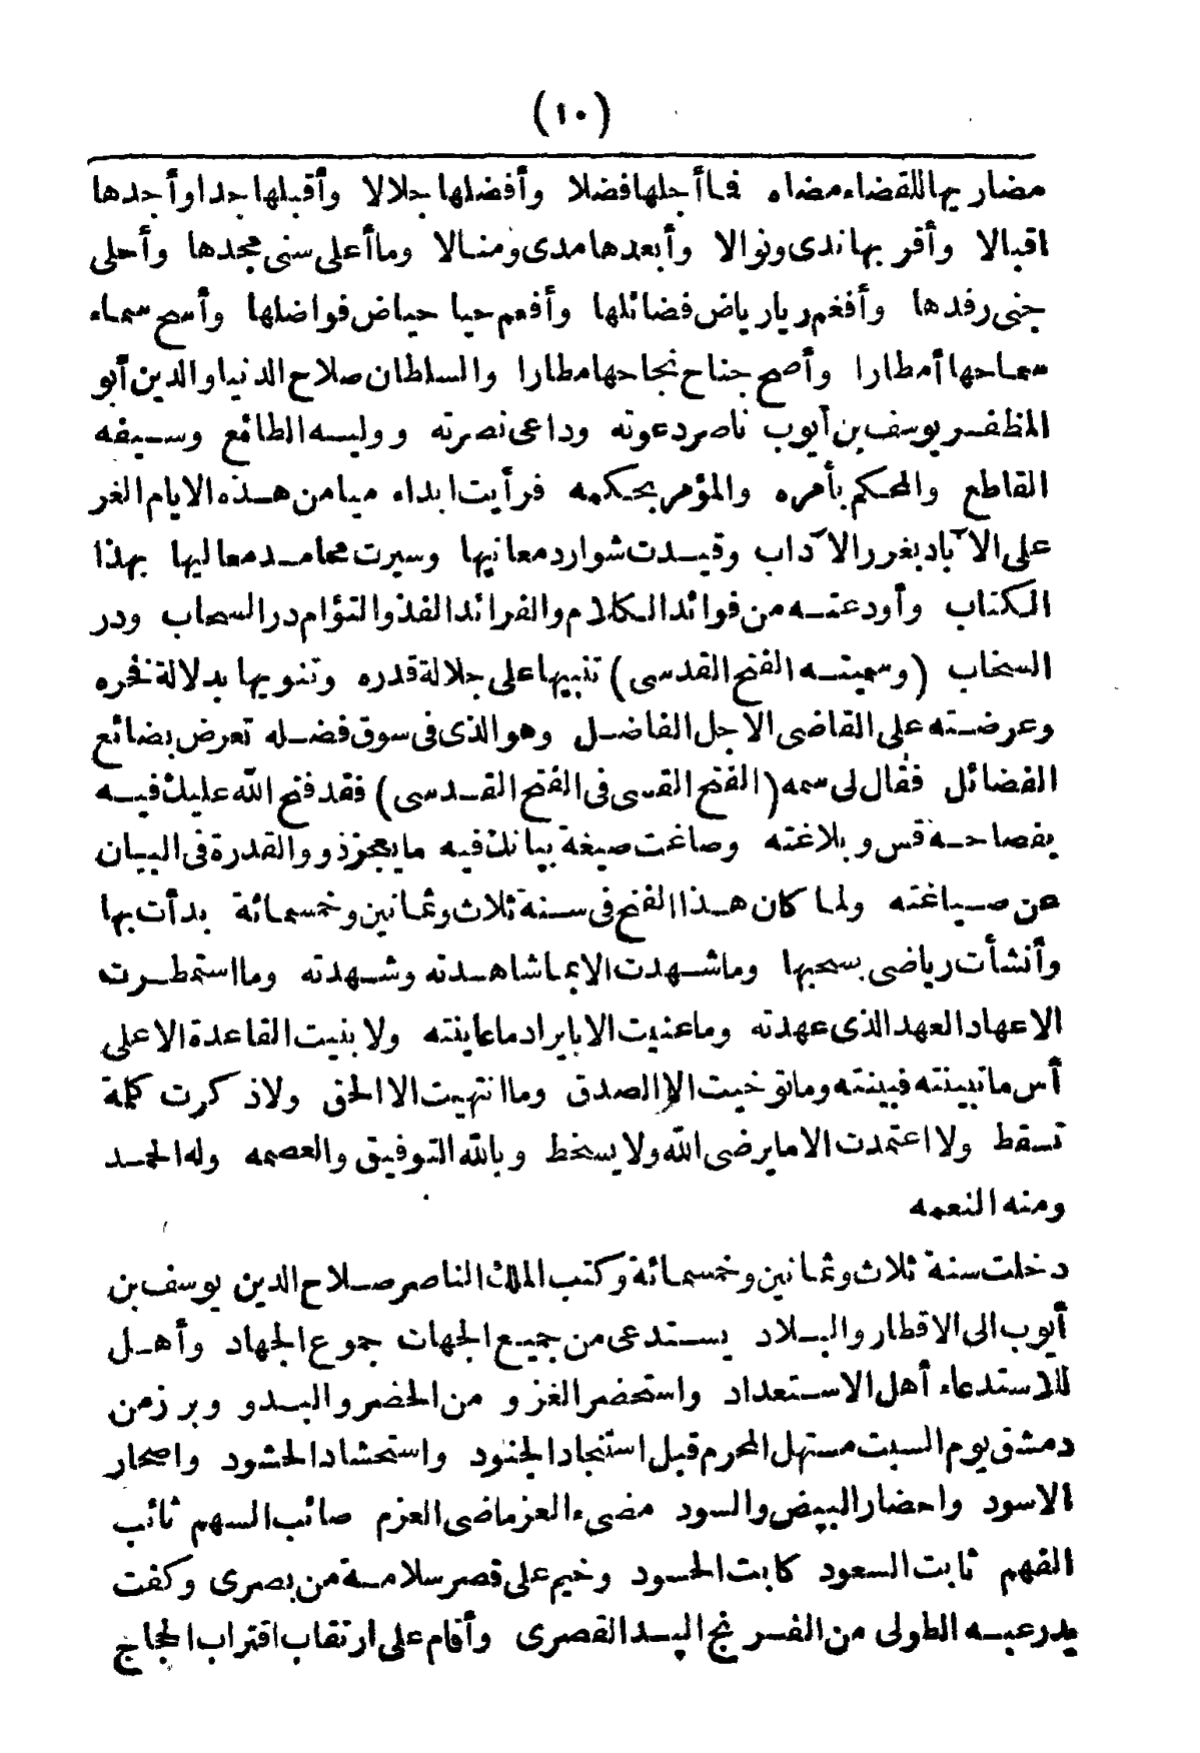 (١٠)
مضاربها للقضاء مضاه فما أجلها فضلا وأفضلها جلالا وأقبلها جدا وأجدها
اقبالا وأقر بها ندى ونوالا وأبعدها مدى ومنالا وما أعلى سنى مجدها وأحلى
جنى رفدها وأفغم ريا رياض فضائلها وأفعم حيا حياض فواضلها وأسمح سماء
سماحها أمطارا وأصح جناح نجاحها مطارا والسلطان صلاح الدنيا والدين أبو
المظفر يوسف بن أيوب ناصر دعوته وداعى نصرته ووليه الطائع وسيفه
القاطع والمحكم بأمره والمؤمر بحكمه فرأيت ابداء ميامن هذه الايام الغر
على الآباد بغرر الآداب وقيدت شوارد معانيها وسيرت محامد معاليها بهذا
الكتاب وأودعته من فوائد الكلام والفرائد الفذ والتؤام در السحاب ودر
السخاب (وسميته الفتح القدسى) تنبيها على جلالة قدره وتنويها بدلالة فخره
وعرضته على القاضى الاجل الفاضل وهو الذى فى سوق فضله تعرض بضائع
الفضائل فقال لى سمه (الفتح القسى فى الفتح القدسى) فقد فتح الله عليك فيه
بفصاحة قس وبلاغته وصاغت صيغة بيانك فيه ما يعجز ذوو القدرة فى البيان
عن صياغته ولما كان هذا الفتح فى سنة ثلاث وثمانين وخمسمائة بدأت بها
وأنشأت رياضى بسحبها وما شهدت الا بما شاهدته وشهدته وما استمطرت
الا عهاد العهد الذى عهدته وما عنيت الا بايراد ما عاينته ولا بنيت القاعدة الا على
أس ما تبينته فبينته وما توخيت الا الصدق وما انتهيت الا الحق ولا ذكرت كلمة
تسقط ولا اعتمدت الا ما يرضى الله ولا يسخط وبالله التوفيق والعصمه وله الحمد
ومنه النعمه
دخلت سنة ثلاث وثمانين وخمسمائة وكتب الملك الناصر صلاح الدين يوسف بن
أيوب الى الاقطار والبلاد يستدعى من جميع الجهات جموع الجهاد وأهل
للاستدعاء أهل الاستعداد واستحضر الغزو من الحضر والبدو وبرز من
دمشق يوم السبت مستهل المحرم قبل استنجاد الجنود واستحشاد الحشود واصحار
الاسود واحضار البيض والسود مضىء العز ماضى العزم صائب السهم ثاقب
الفهم ثابت السعود كابت الحسود وخيم على قصر سلامة من بصرى وكفت
يد رعبه الطولى من الفرنج اليد القصرى وأقام على ارتقاب اقتراب الحجاج